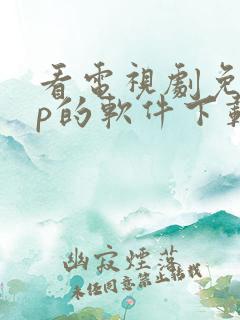 看電視劇免
p的軟件下載
幽寂煙落
未经同意禁止转载